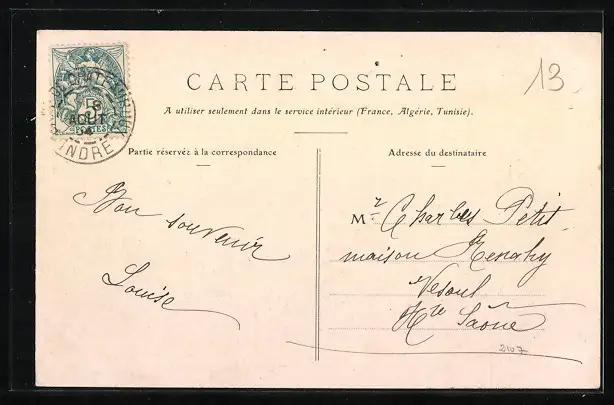 13
CARTE POSTALE
A utiliser seulement dans le service intérieur (France, Algérie, Tunisie).
Partie réservée à la correspondance
Adresse du destinataire
18
AOUT
INDRE
Bon souvenir
Louise
Mr Charles Petit
maison
Vesoul
Hte Saône
2107